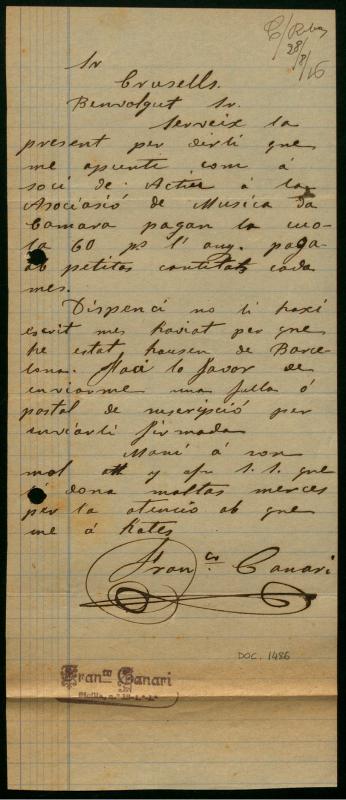 C/Ribas
28/
/8/16
Sr
Crusells.
Benvolgut Sr.
Serveix la
present per dirli que
me apunte com á
soci de Actiu á la
Asociasió de Musica da
Camara pagan la cuo-
ta 60 ps l'any. paga
ab petitas cantitats cada
mes.
Dispenci no li haxi
escrit mes haviat per que
he estat hausen de Barce-
lona. Faci lo favor de
enviarme una fulla ó
postal de inscripsció per
enviarli firmada
Mani á son
mol att y afm s. s. que
li dona moltas merces
per la atencio ab que
me á
Fran.co Canari
DOC. 1486
Fran.co Canari
Sicilia, n.º